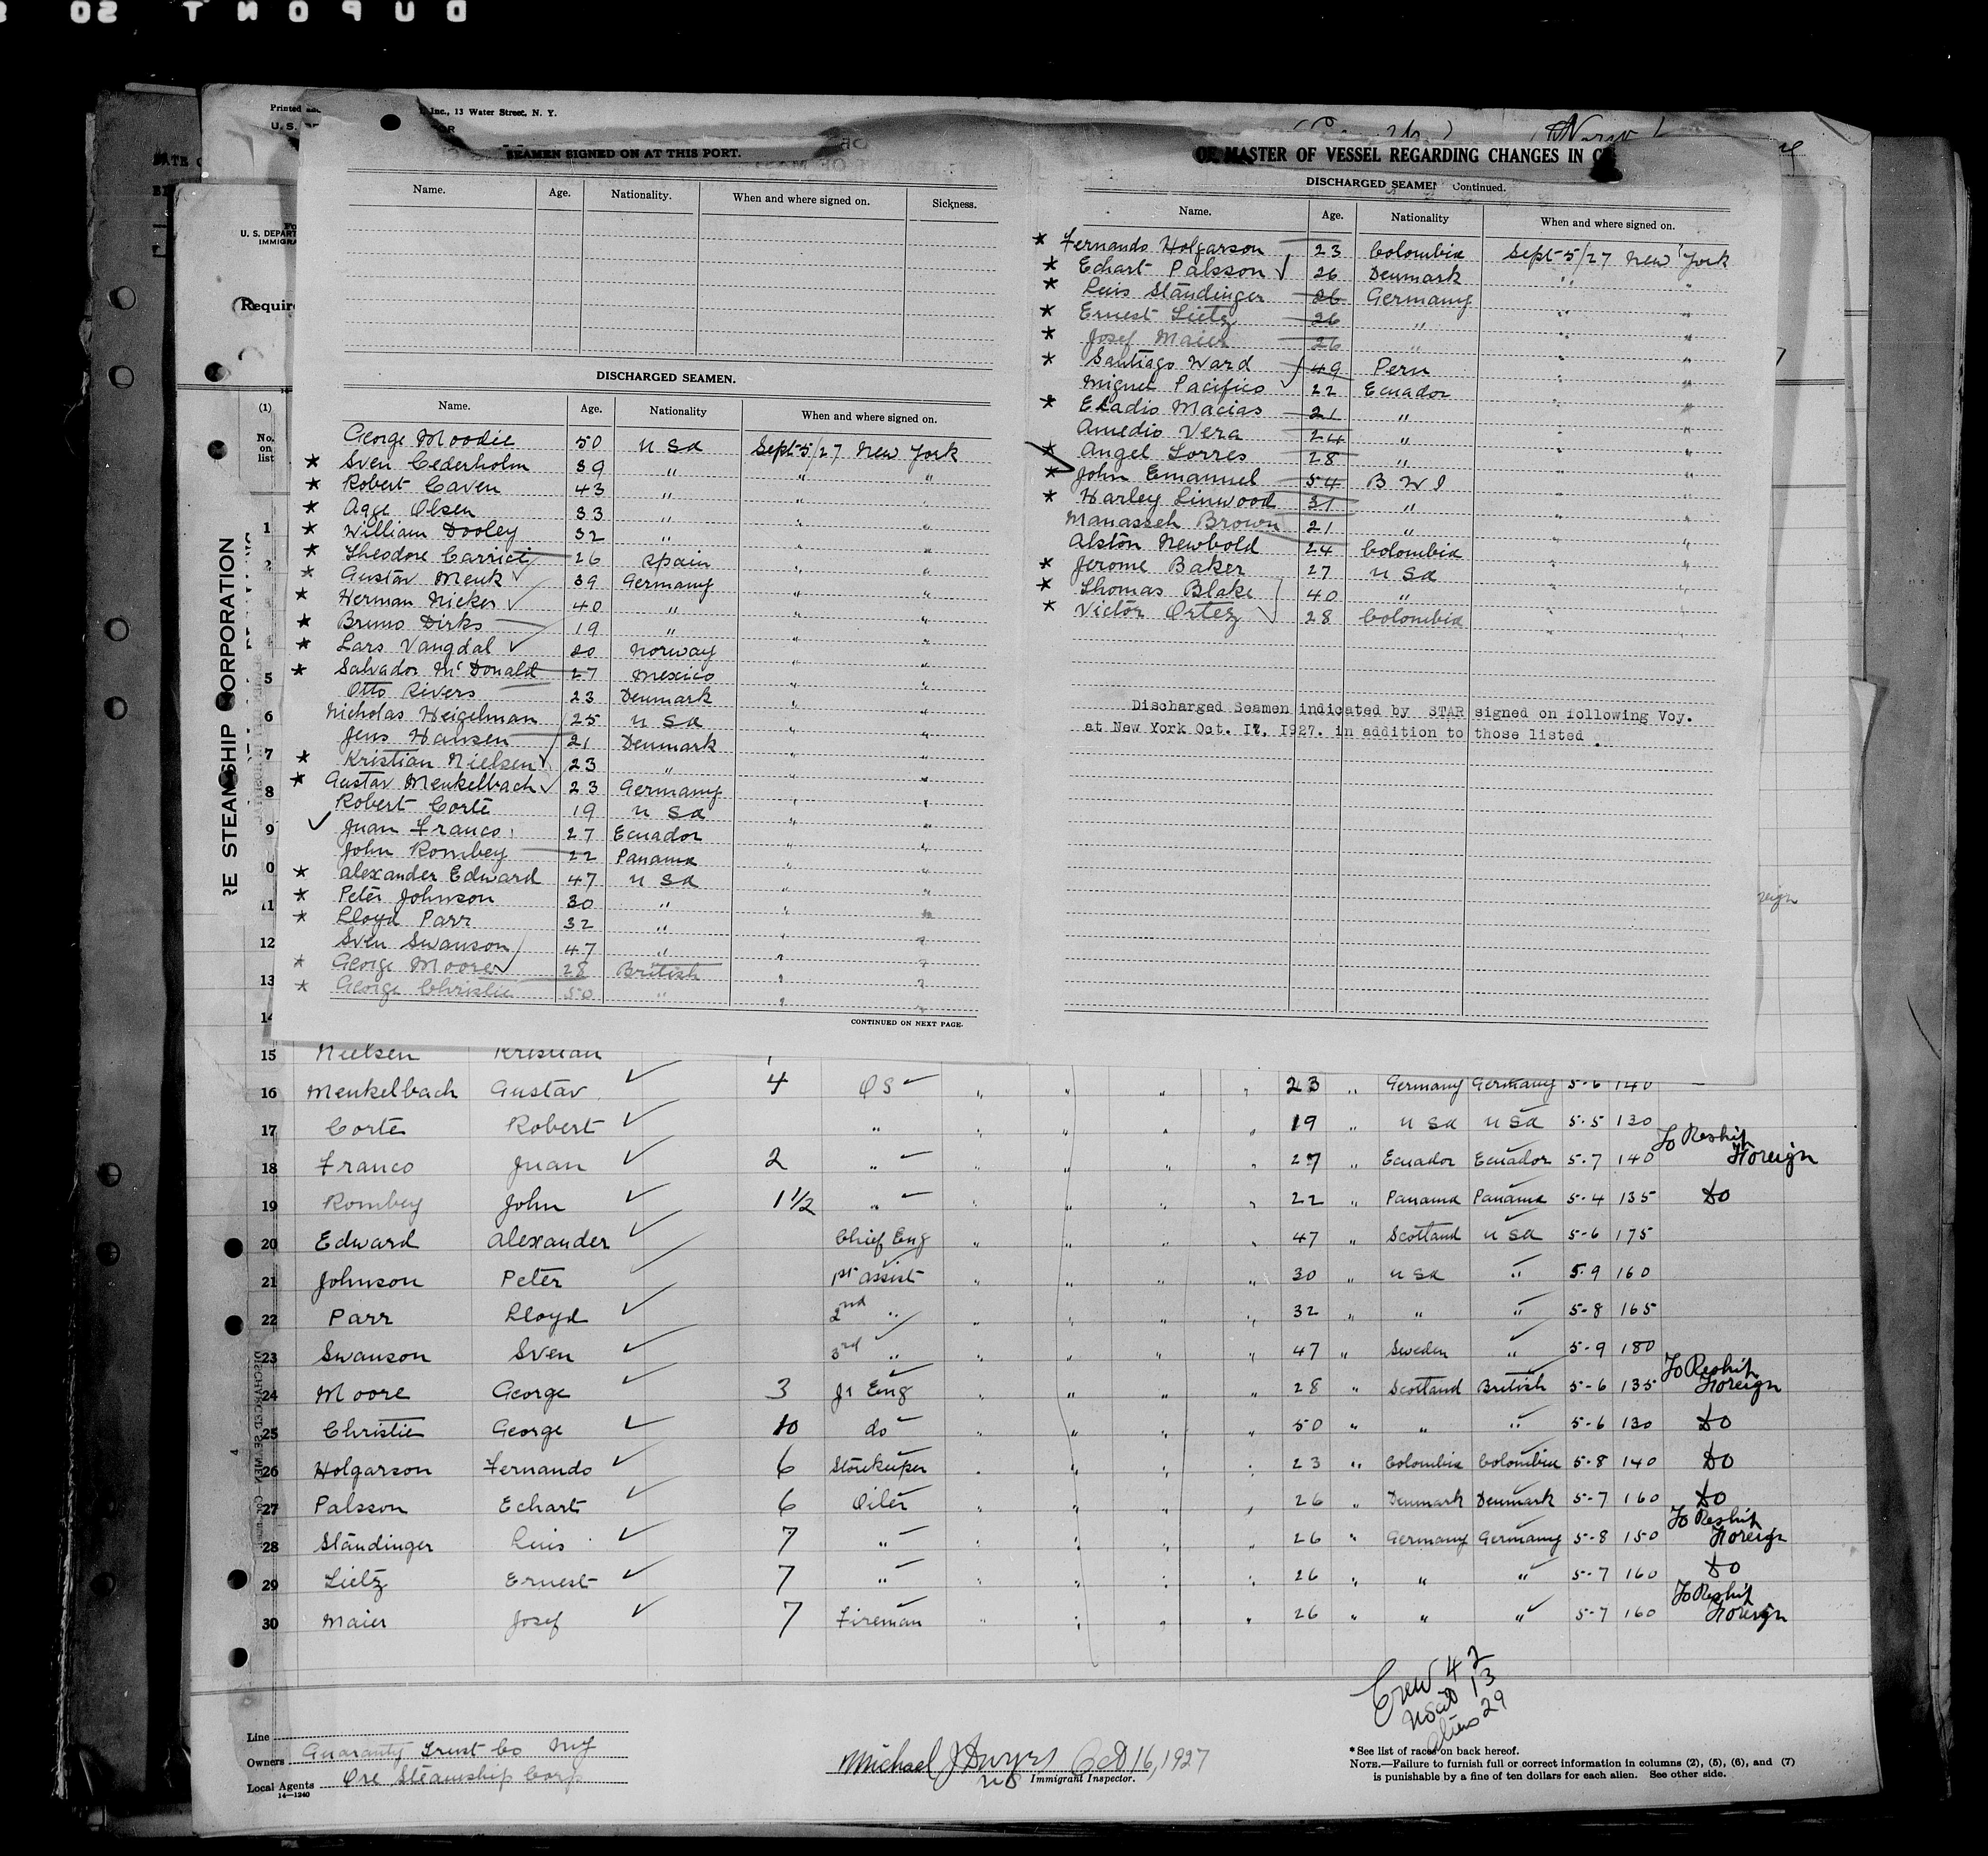 DUPONT SO
Printed
Inc., 13 Water Street, N. Y.
U. S.
SEAMEN SIGNED ON AT THIS PORT.
Name. Age. Nationality. When and where signed on. Sickness.
DISCHARGED SEAMEN.
Name. Age. Nationality When and where signed on.
George Moodie 50 U Sa Sept 5/27 New York
* Sven Cederholm 39 " " "
* Robert Caven 43 " " "
* Age Olsen 33 " " "
* William Dooley 32 " " "
* Theodore Carrici 26 Spain " "
* Gustav Menk 39 Germany " "
* Herman Nicker 40 " " "
* Bruno Dirks 19 " " "
* Lars Vangdal 20 Norway " "
* Salvador McDonald 27 Mexico " "
Otto Rivers 23 Denmark " "
Nicholas Heigelman 25 U Sa " "
Jens Hansen 21 Denmark " "
* Kristian Nielsen 23 " " "
* Gustav Menkelbach 23 Germany " "
Robert Corte 19 U Sa " "
Juan Franco 27 Ecuador " "
John Rombey 22 Panama " "
* Alexander Edward 47 U Sa " "
* Peter Johnson 30 " " "
* Lloyd Parr 32 " " "
Sven Swanson 47 " " "
* George Moore 28 British " "
* George Christie 50 " " "
CONTINUED ON NEXT PAGE.
OF MASTER OF VESSEL REGARDING CHANGES IN C
DISCHARGED SEAMEN Continued.
Name. Age. Nationality When and where signed on.
* Fernando Holgarson 23 Colombia Sept 5/27 New York
* Echart Palsson 26 Denmark " "
* Luis Standinger 26 Germany " "
* Ernest Lietz 26 " " "
* Josef Maier 26 " " "
* Santiago Ward 49 Peru " "
Miguel Pacifico 22 Ecuador " "
* Eladio Macias 21 " " "
Amedio Vera 24 " " "
* Angel Torres 28 " " "
* John Emanuel 54 B W I " "
* Harley Linwood 31 " " "
Manasseh Brown 21 " " "
Alston Newbold 24 Colombia " "
* Jerome Baker 27 U Sa " "
* Thomas Blake 40 " " "
* Victor Ortez 28 Colombia " "
Discharged Seamen indicated by STAR signed on following Voy.
at New York Oct. 17, 1927. in addition to those listed.
U. S. DEPART
IMMIGRA
Requir
(1)
No. on list
RE STEAMSHIP CORPORATION
1
2
5
6
7
8
9
0
11
12
13
14
15 Nielsen Kristian
16 Menkelbach Gustav 4 OS " " " " 23 " Germany Germany 5-6 140
17 Corte Robert " " " " " 19 " U Sa U Sa 5-5 130
18 Franco Juan 2 " " " " " 27 " Ecuador Ecuador 5-7 140 To Reship Foreign
19 Rombey John 1 1/2 " " " " " 22 " Panama Panama 5-4 135 Do
20 Edward Alexander Chief Eng " " " " 47 " Scotland U Sa 5-6 175
21 Johnson Peter 1st Assist " " " " 30 " U Sa " 5-9 160
22 Parr Lloyd 2nd " " " " " 32 " " " 5-8 165
23 Swanson Sven 3rd " " " " " 47 " Sweden " 5-9 180
24 Moore George 3 Jr Eng " " " " 28 " Scotland British 5-6 135 To Reship Foreign
25 Christie George 10 do " " " " 50 " " " 5-6 130 Do
26 Holgarson Fernando 6 Storekeeper " " " " 23 " Colombia Colombia 5-8 140 Do
27 Palsson Echart 6 Oiler " " " " 26 " Denmark Denmark 5-7 160 Do
28 Standinger Luis 7 " " " " " 26 " Germany Germany 5-8 150 To Reship Foreign
29 Lietz Ernest 7 " " " " " 26 " " " 5-7 160 Do
30 Maier Josef 7 Fireman " " " " 26 " " " 5-7 160 To Reship Foreign
Crew 42
USC 13
Aliens 29
Line
Owners Guaranty Trust Co NY
Local Agents Ore Steamship Corp
14—1240
Michael J Dwyer Oct 16, 1927
Immigrant Inspector.
* See list of races on back hereof.
NOTE.—Failure to furnish full or correct information in columns (2), (5), (6), and (7)
is punishable by a fine of ten dollars for each alien. See other side.